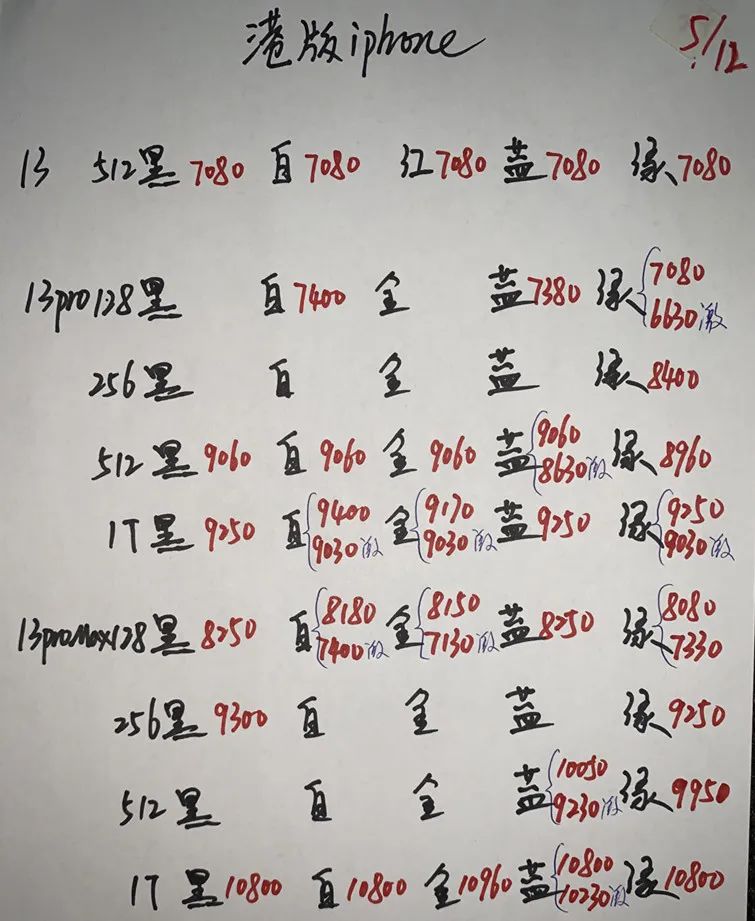 港版iphone 5/12
13 512黑7080 白7080 红7080 蓝7080 绿7080
13pro128黑 白7400 金 蓝7380 绿{7080 6630激
256黑 白 金 蓝 绿8400
512黑9060 白9060 金9060 蓝{9060 8630激 绿8960
1T黑9250 白{9400 9030激 金{9170 9030激 蓝9250 绿{9250 9030激
13proMax128黑8250 白{8180 7400激 金{8150 7130激 蓝8250 绿{8080 7330
256黑9300 白 金 蓝 绿9250
512黑 白 金 蓝{10050 9230激 绿9950
1T黑10800 白10800 金10960 蓝{10800 10230激 绿10800